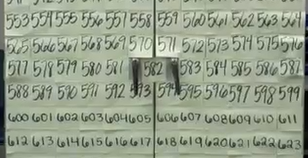 553 554 555 556 557 558 559 560 561 562 563 564
565 566 567 568 569 570 571 572 573 574 575 576
577 578 579 580 581 582 583 584 585 586 587
588 589 590 591 592 593 594 595 596 597 598 599
600 601 602 603 604 605 606 607 608 609 610 611
612 613 614 615 616 617 618 619 620 621 622 623